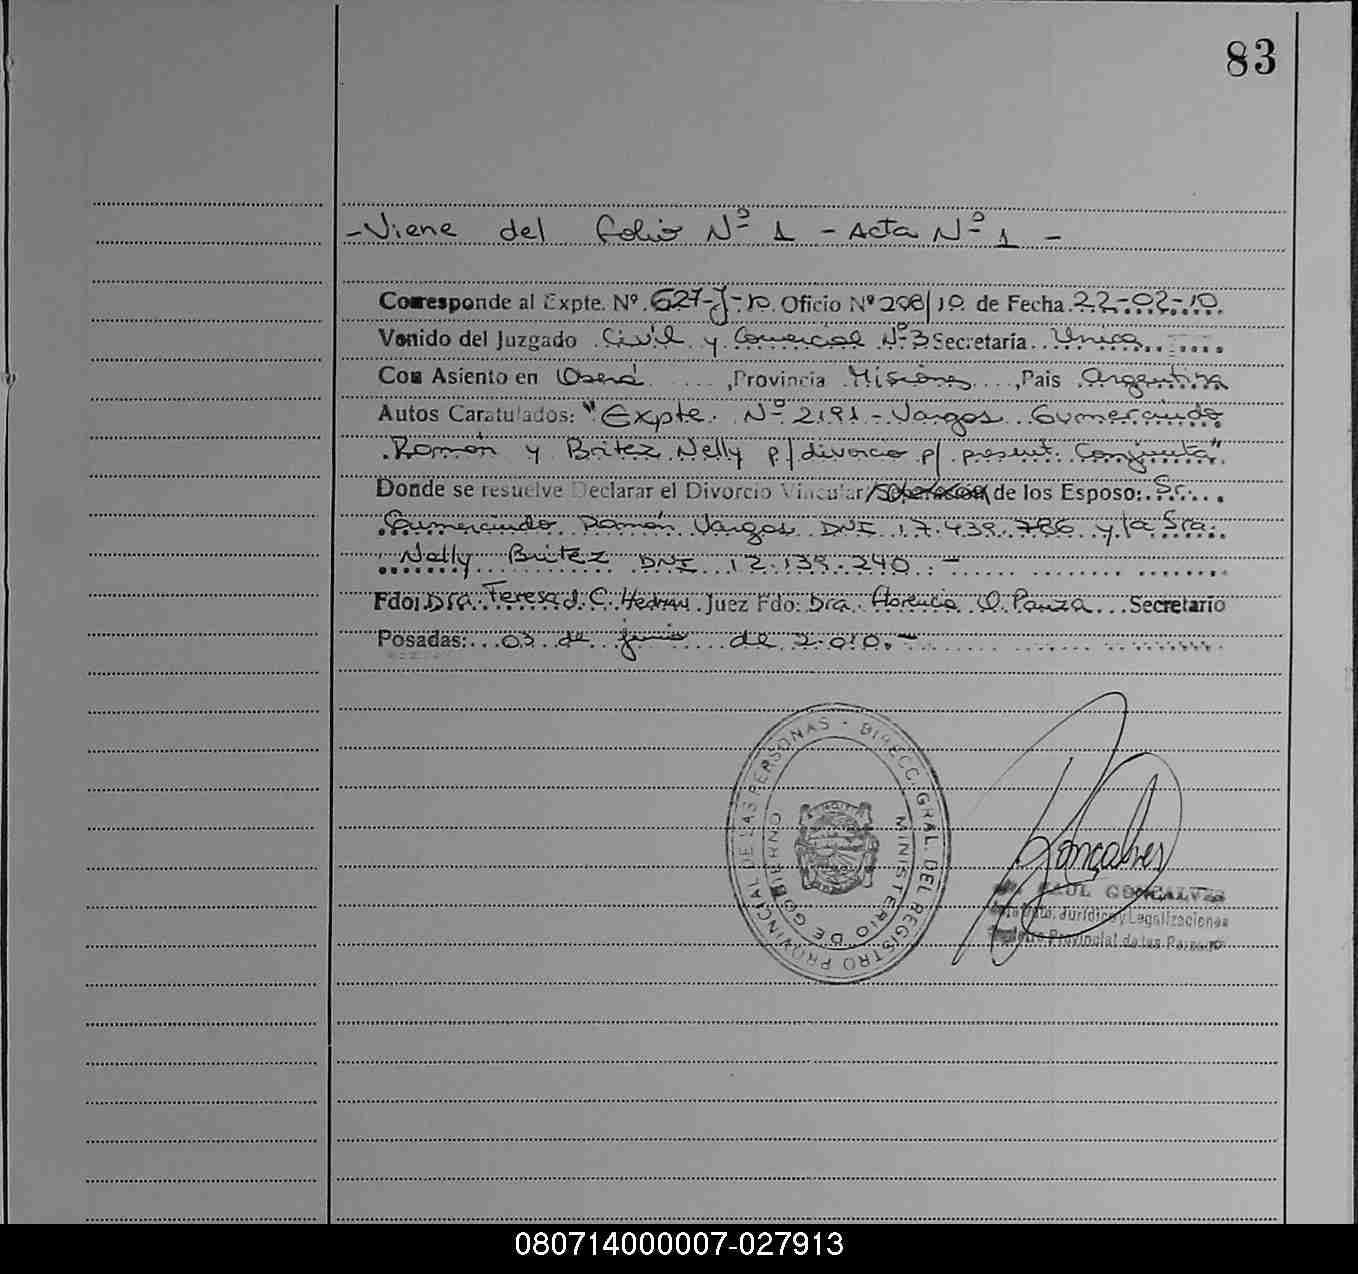 83
- Viene del folio Nº 1 - Acta Nº 1 -
Corresponde al Expte. Nº 627-J-10. Oficio Nº 298/10 de Fecha 22-02-10.
Venido del Juzgado Civil y Comercial Nº 3 Secretaría Unica
Con Asiento en Oberá, Provincia Misiones, País Argentina
Autos Caratulados: "Expte. Nº 2191 - Vargas Gumercindo
Ramón y Britez Nelly p/divorcio p/ present. Conjunta"
Donde se resuelve Declarar el Divorcio Vincular/ de los Esposo: Sr.
Gumercindo Ramón Vargas DNI 17.439.786 y la Sra.
Nelly Britez DNI 12.139.240.-
Fdo: Dra. Teresa J. C. Juez Fdo: Dra. Florencia O. Panza Secretario
Posadas: 03 de junio de 2.010.-
DIRECC. GRAL. DEL REGISTRO PROVINCIAL DE LAS PERSONAS
MINISTERIO DE GOBIERNO
Goncalves
RAUL GONCALVES
Jurídico y Legalizaciones
Provincial de las Personas
080714000007-027913